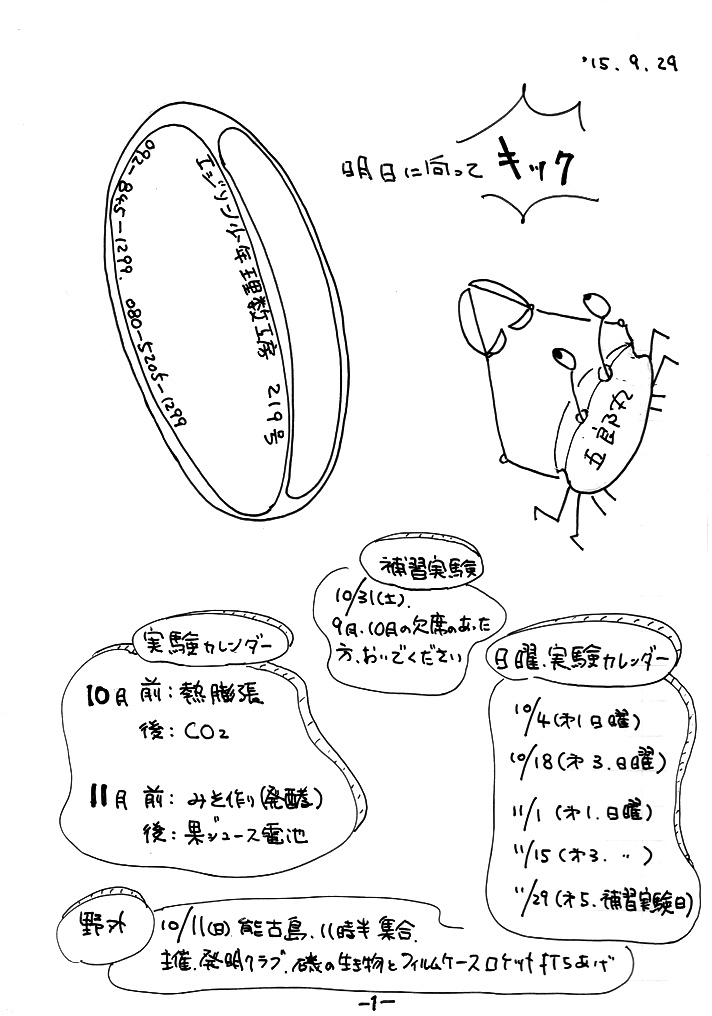 '15.9.29
明日に向って キック
エジソン少年理数工房 219号
092-845-1299. 080-5205-1299
五郎丸
補習実験
10/31(土).
9月.10月の欠席のあった
方.おいでください
実験カレンダー
10月 前:熱膨張
後:CO2
11月 前:みそ作り(発酵)
後:果ジュース電池
日曜.実験カレンダー
10/4(才1日曜)
10/18(才3.日曜)
11/1(才1.日曜)
11/15(才3. 〃 )
11/29(才5.補習実験日)
野外
10/11(日).能古島.11時半集合.
主催.発明クラブ.磯の生き物とフィルムケースロケットうちあげ
-1-